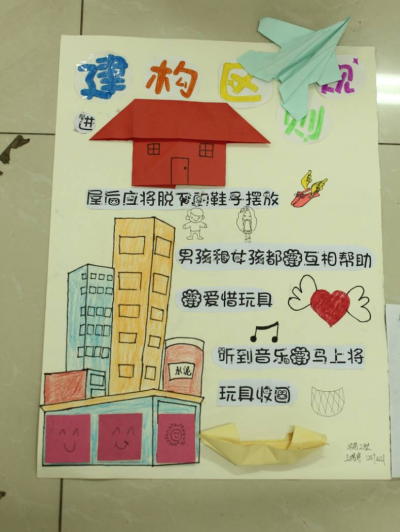 建构区规
则
进
屋后应将脱下的鞋子摆放
男孩和女孩都要互相帮助
要爱惜玩具
听到音乐要马上将
水泥
玩具收回